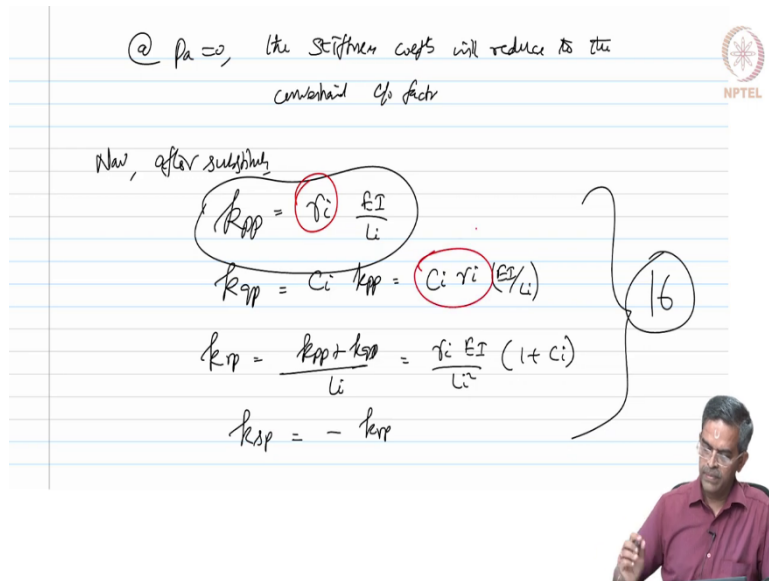 @ Pa = 0, the stiffness coeffs will reduce to the
NPTEL
c/o factr
Now, after substitutg
kpp = ri EI/Li
kqp = Ci kpp = Ci ri (EI/Li)
krp = (kpp + kqp)/Li = ri EI/Li² (1 + Ci)
ksp = - krp
16